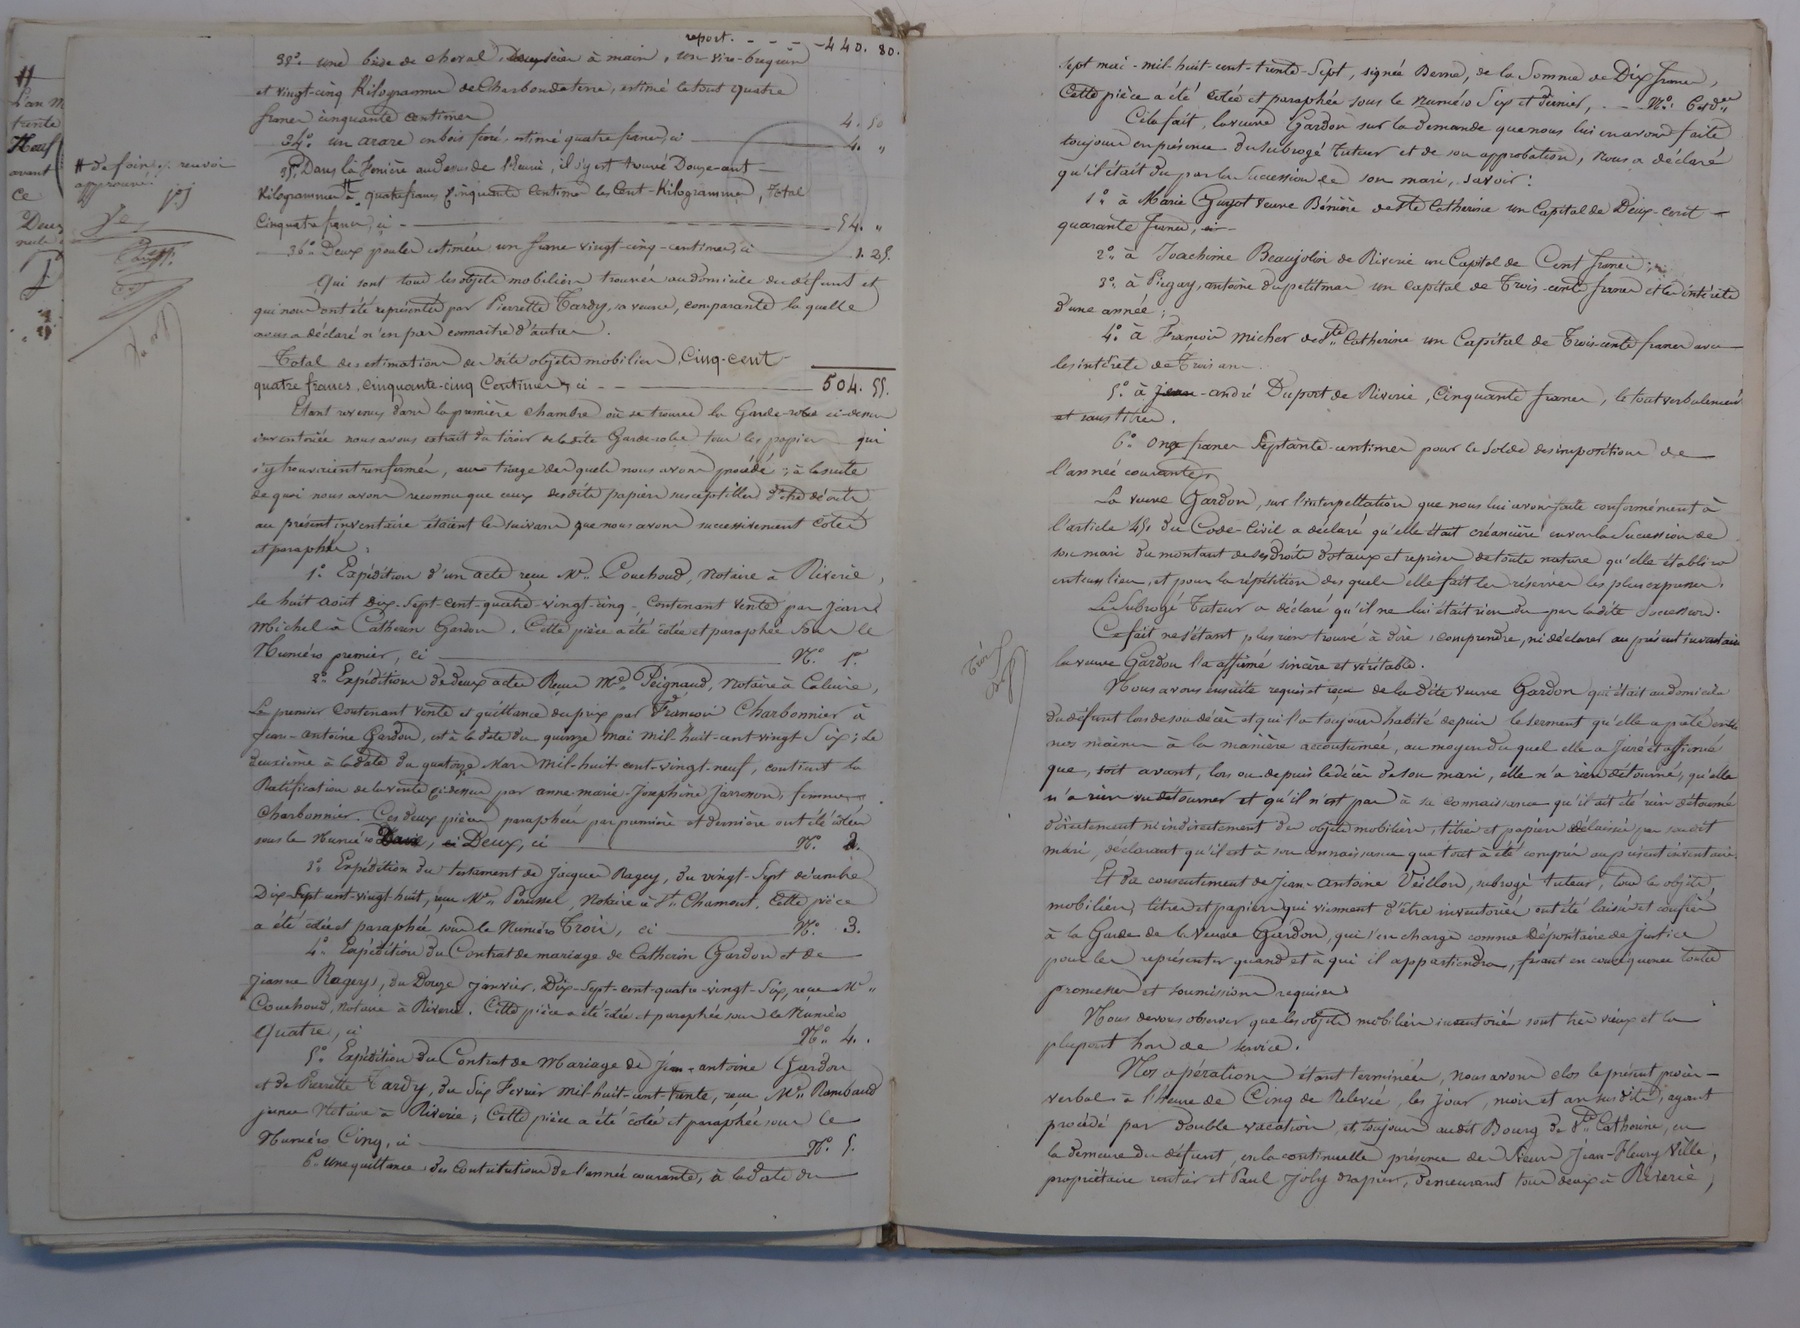 report. - - - - 440. 80.
33° une bride de cheval, scie à main, un vire-brequin
et vingt-cinq Kilogrammes de Charbon de terre, estimé le tout quatre
francs cinquante centimes 4. 50
34° un araire en bois ferré, estimé quatre francs, ci 4. "
35° Dans la fenière au dessus de l'écurie, il s'y est trouvé Douze-cent
Kilogrammes # à quatre francs cinquante Centimes les Cent-Kilogrammes, Total
Cinquante francs, ci 54. "
36° Deux poules estimées un franc vingt-cinq centimes, ci 1. 25.
Qui sont tous les objets mobiliers trouvés au domicile du défunt et
qui nous ont été représentés par Pierrette Tardy, sa veuve, comparante laquelle
nous a déclaré n'en pas connaitre d'autres.
Total des estimations des dits objets mobiliers, Cinq-cent
quatre francs, cinquante-cinq Centimes, ci 504. 55.
Etant revenus dans la première chambre où se trouve la Garde-robe ci-dessus
inventoriée nous avons extrait du tiroir de la dite Garde-robe tous les papiers qui
s'y trouvaient renfermés, au triage des quels nous avons procédé; à la suite
de quoi nous avons reconnu que ceux des dits papiers susceptibles d'être décrits
au présent inventaire étaient les suivans que nous avons successivement cotés
et paraphés:
1° Expédition d'un acte reçu Me Couchoud, Notaire à Riverie,
le huit Août Dix-Sept-Cent-quatre-vingt-cinq, Contenant vente par Jean
Michel à Catherin Gardon. Cette pièce a été cotée et paraphée sous le
Numéro premier, ci N° 1er
2° Expéditions de deux actes Reçus Me Peignaud, Notaire à Caluire,
Le premier Contenant vente et quittance du prix par François Charbonnier à
Jean-antoine Gardon, est à la date du quinze mai mil-huit-cent vingt-Six; Le
deuxième à la date du quatorze Mars Mil-huit-cent-vingt-neuf, contient la
Ratification de la vente ci-dessus par anne-marie-Josephine Jarrosson, femme
Charbonnier. Ces deux pièces paraphées par première et dernière ont été cotées
sous le Numéro Deux, ci N° 2.
3° Expédition du testament de Jacques Ragey, du vingt-Sept décembre
Dix-Sept-cent-vingt-huit, reçu Me Perussel, Notaire à St Chamont. Cette pièce
a été cotée et paraphée sous le Numéro Trois, ci N° 3.
4° Expédition du Contrat de mariage de Catherin Gardon et de
Jeanne Ragey, du Douze Janvier, Dix-Sept-cent-quatre-vingt-Six, reçu Me
Couchoud, Notaire à Riverie. Cette pièce a été cotée et paraphée sous le Numéro
Quatre, ci N° 4.
5° Expédition du Contrat de Mariage de Jean-antoine Gardon
et de Pierrette Tardy, du Six Fevrier mil-huit-cent-trente, reçu Me Rambaud
jeune Notaire à Riverie; Cette pièce a été cotée et paraphée sous le
Numéro Cinq, ci N° 5.
6° Une quittance des Contributions de l'année courante, à la date du
# de foin, renvoi
approuvé.
Sept mai-mil-huit-cent-trente-Sept, signée Berne, de la Somme de Dix francs,
Cette pièce a été cotée et paraphée sous le numéro Six et dernier, N° 6 et der
Cela fait, la veuve Gardon sur la demande que nous lui en avons faite
toujours en présence du Subrogé Tuteur et de son approbation, nous a déclaré
qu'il était dû par la Succession de son mari, savoir:
1° à Marie Guyot veuve Bénière de Ste Catherine un Capital de Deux-cent
quarante francs, ci
2° à Joachime Beaujolin de Riverie un Capital de Cent francs;
3° à Piegay, antoine du petitmas un capital de Trois-cents francs et les intérêts
d'une année;
4° à François micher de Ste Catherine un Capital de Trois-cents francs avec
les intérêts de Trois ans.
5° à Jean-andré Duport de Riverie, Cinquante francs, le tout verbalement
et sans titres.
6° Onze francs Septante-centimes pour le Solde des impositions de
l'année courante,
La veuve Gardon, sur l'interpellation que nous lui avons faite conformément à
l'article 451 du Code-Civil a déclaré qu'elle était créancière envers la Succession de
son mari du montant de ses droits dotaux et reprises de toute nature qu'elle établira
en tems lieu, et pour la répétition des quels elle fait les réserves les plus expresses.
Le Subrogé Tuteur a déclaré qu'il ne lui était rien dû par la dite Succession.
Ce fait ne s'étant plus rien trouvé à dire, comprendre, ni déclarer au présent inventaire
la veuve Gardon l'a affirmé sincère et véritable.
Nous avons ensuite requis et reçu de la dite veuve Gardon qui était au domicile
du défunt lors de son décès et qui l'a toujours habité depuis le serment qu'elle a prêté entre
nos mains à la manière accoutumée, au moyen du quel elle a Juré et affirmé
que, soit avant, lors ou depuis le décès de son mari, elle n'a rien détourné, qu'elle
n'a rien vu détourner et qu'il n'est pas à sa connaissance qu'il ait été rien détourné
directement ni indirectement des objets mobiliers, titres et papiers délaissés par son dit
mari, déclarant qu'il est à sa connaissance que tout a été compris au présent inventaire.
Et du consentement de Jean-Antoine Veillon, subrogé tuteur, tous les objets
mobiliers, titres et papiers qui viennent d'être inventoriés ont été laissés et confiés
à la Garde de la Veuve Gardon, qui s'en charge comme dépositaire de Justice
pour les représenter quand et à qui il appartiendra, faisant en conséquence toutes
promesses et soumissions requises
Nous devons observer que les objets mobiliers inventoriés sont très vieux et la
plupart hors de service.
Nos opérations étant terminées, nous avons clos le présent procès-
verbal à l'heure de Cinq de Relevée, les jour, mois et an susdits, ayant
procédé par double vacation, et toujours audit Bourg de Ste Catherine, en
la demeure du défunt, en la continuelle présence des Sieurs Jean-Fleury Ville,
propriétaire rentier et Paul Joly drapier, demeurant tous deux à Riverie,